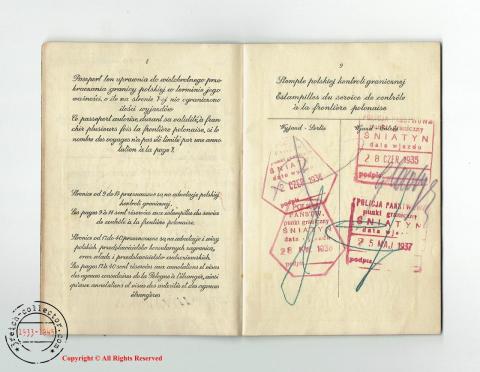 8
Paszport ten uprawnia do wielokrotnego prze-
kraczania granicy polskiej w terminie jego
ważności, o ile na stronie 7-ej nie ograniczono
ilości wyjazdów
Ce passeport autorise, durant sa validité, à fran-
chir plusieurs fois la frontière polonaise, si le
nombre des voyages n'a pas été limité par une anno-
tation à la page 7.
Stronice od 9 do 16 przeznaczone są na adnotacje polskiej
kontroli granicznej.
Les pages 9 à 16 sont réservées aux estampilles du service
de contrôle à la frontière polonaise.
Stronice od 17 do 40 przeznaczone są na adnotacje i wizy
polskich przedstawicielstw konsularnych zagranicą,
oraz władz i przedstawicielstw cudzoziemskich.
Les pages 17 à 40 sont réservées aux annotations et visas
des agents consulaires de la Pologne à l'étranger, ainsi
qu'aux annotations et visas des autorités et des agences
étrangères
9
Stemple polskiej kontroli granicznej
Estampilles du service de contrôle
à la frontière polonaise
Wyjazd - Sortie
Wjazd - Entrée
ŚNIATYN
data wyjazdu
2 CZER 1936
podpis
PAŃSTW.
punkt graniczny
ŚNIATYN
data
28 1936
POLICJA PAŃSTWOWA
punkt graniczny
ŚNIATYN
data wjazdu
28 CZER. 1935
podpis
POLICJA PAŃSTW.
punkt graniczny
ŚNIATYN
data
25 MAJ 1937
podpis
3reich-collector.com
1933-1945
Copyright © All Rights Reserved